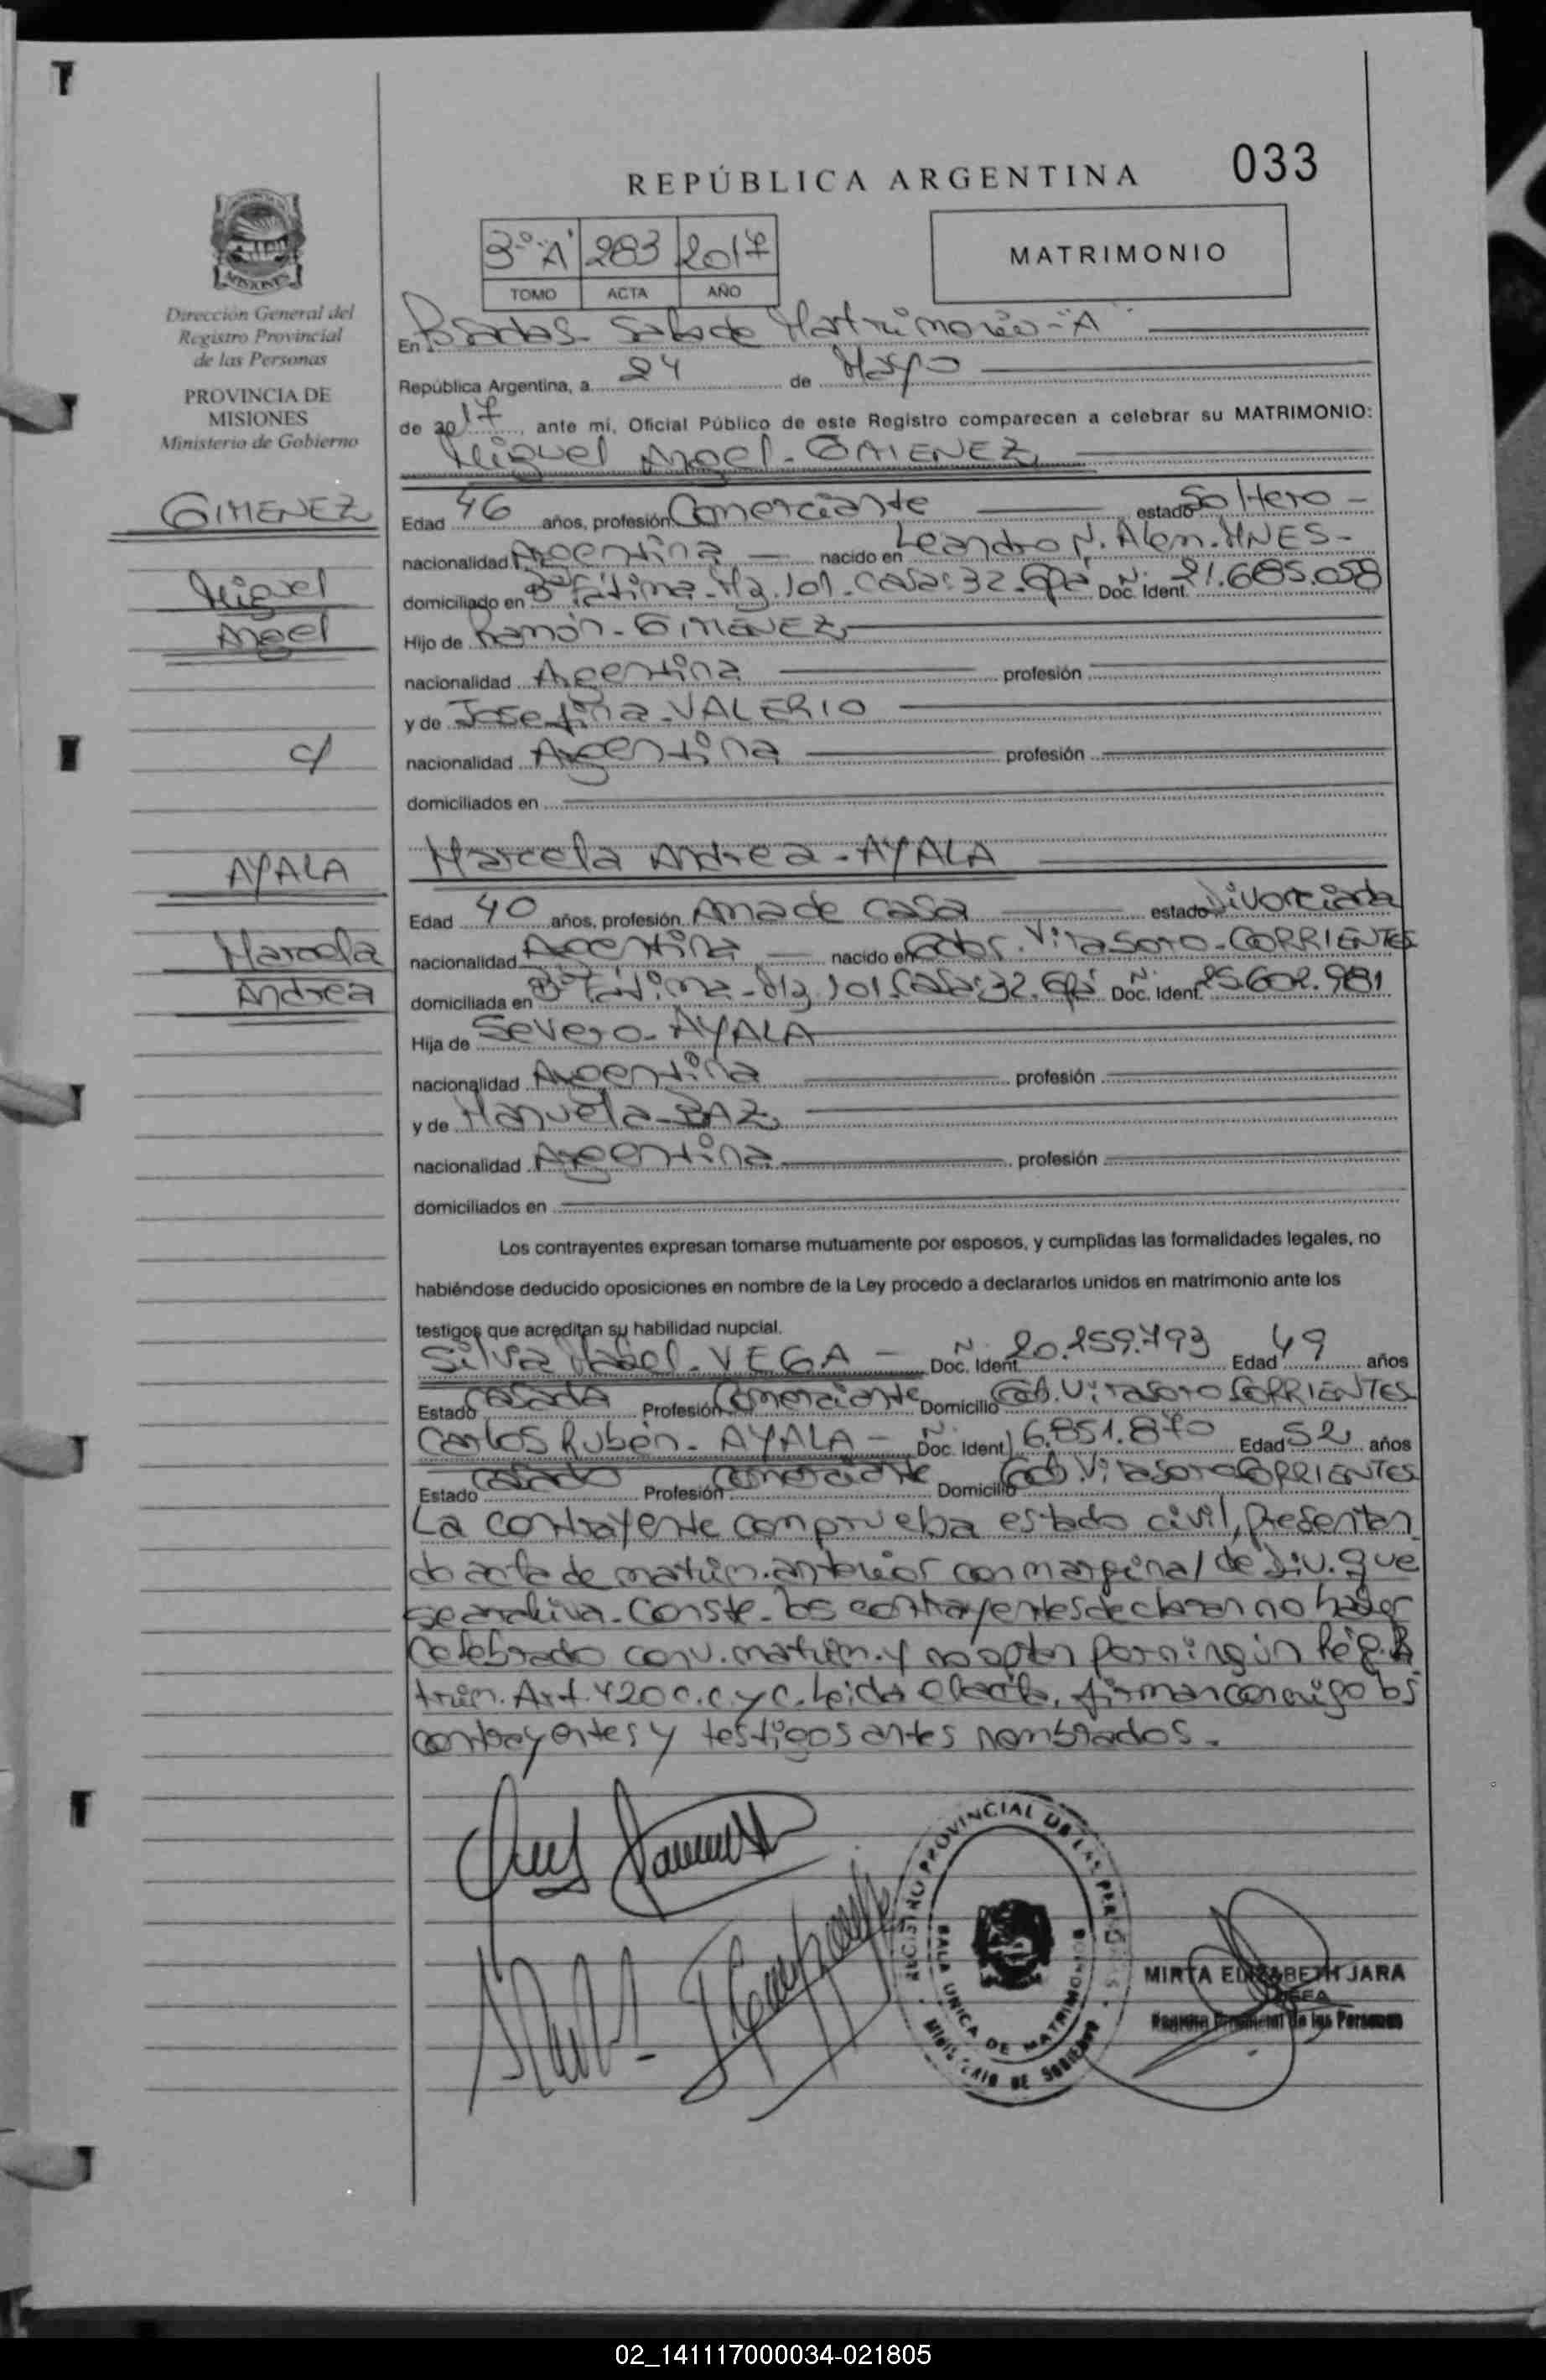 033
REPÚBLICA ARGENTINA
MATRIMONIO
3º "A" 283 2017
TOMO ACTA AÑO
MISIONES
Dirección General del
Registro Provincial
de las Personas
PROVINCIA DE
MISIONES
Ministerio de Gobierno
GIMENEZ
Miguel
Angel
c/
AYALA
Marcela
Andrea
En Posadas - Sala de Matrimonio - "A"
República Argentina, a 24 de Mayo
de 2017, ante mi, Oficial Público de este Registro comparecen a celebrar su MATRIMONIO:
Miguel Angel - GIMENEZ
Edad 46 años, profesión Comerciante estado Soltero -
nacionalidad Argentina - nacido en Leandro N. Alem. MNES -
domiciliado en Bº Fátima - Mz. 101 - Casa: 32 - Gpá Doc. Ident. Nº 21.685.058
Hijo de Ramón - GIMENEZ
nacionalidad Argentina profesión
y de Josefina - VALERIO
nacionalidad Argentina profesión
domiciliados en
Marcela Andrea - AYALA
Edad 40 años, profesión Ama de casa estado Divorciada
nacionalidad Argentina - nacido en Gdor. Virasoro - CORRIENTES
domiciliada en Bº Fátima - Mz. 101. Casa: 32. Gpá Doc. Ident. Nº 25.602.981
Hija de Severo - AYALA
nacionalidad Argentina profesión
y de Manuela - PAZ
nacionalidad Argentina profesión
domiciliados en
Los contrayentes expresan tomarse mutuamente por esposos, y cumplidas las formalidades legales, no
habiéndose deducido oposiciones en nombre de la Ley procedo a declararlos unidos en matrimonio ante los
testigos que acreditan su habilidad nupcial.
Silvia Mabel - VEGA - Doc. Ident. Nº 20.259.793 Edad 49 años
Estado Casada Profesión Comerciante Domicilio Gob. Virasoro CORRIENTES
Carlos Rubén - AYALA - Doc. Ident. Nº 16.851.870 Edad 52 años
Estado Casado Profesión Comerciante Domicilio Gob. Virasoro CORRIENTES
La contrayente comprueba estado civil, presentan
do acta de matrim. anterior con marginal de Div. que
se archiva. Conste - los contrayentes declaran no haber
celebrado conv. matrim. y no optan por ningún Rég. Pa
trim. Art. 420 C.C. y C. Leída el acta, firman conmigo los
contrayentes y testigos antes nombrados.
REGISTRO PROVINCIAL DE LAS PERSONAS
SALA UNICA DE MATRIMONIOS
MINISTERIO DE GOBIERNO
MIRTA ELIZABETH JARA
Registro Provincial de las Personas
02_141117000034-021805